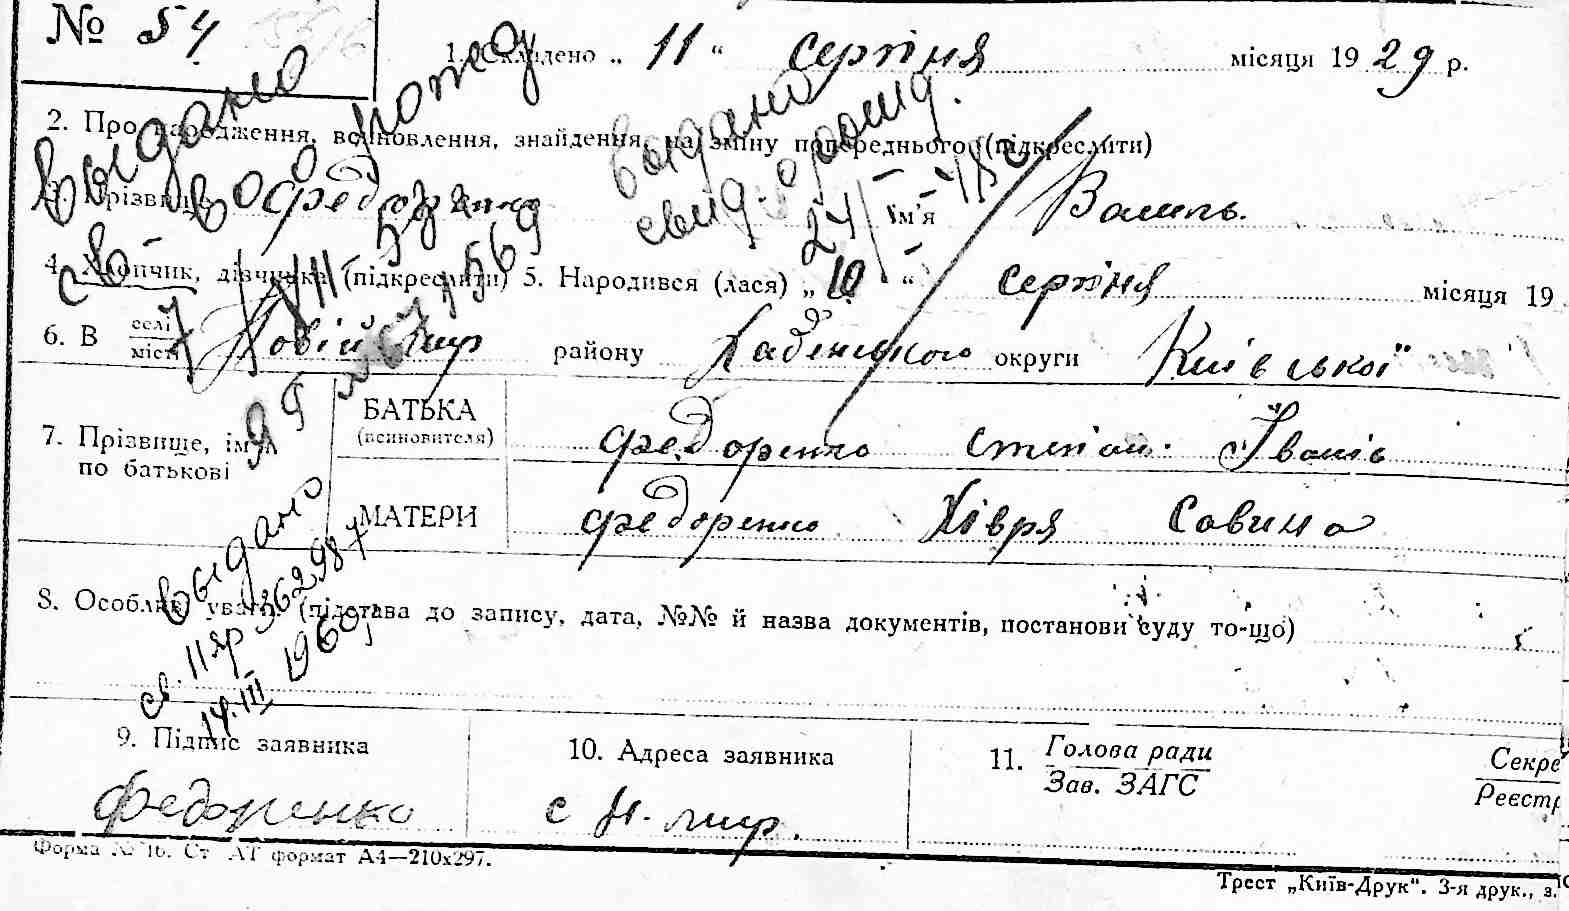 № 54
1. Складено „ 11 “ серпня місяця 1929 р.
2. Про народження, всиновлення, знайдення, на зміну попереднього (підкреслити)
3. Прізвище Федоренко Ім'я Василь.
4. Хлопчик, дівчинка (підкреслити) 5. Народився (лася) „ 10 “ серпня місяця 19
6. В селі місті Новій Мир району Хабенського округи Київської
7. Прізвище, ім'я по батькові
БАТЬКА (всиновителя) Федоренко Степан Іванів
МАТЕРИ Федоренко Хівря Савина
8. Особливі уваги (підстава до запису, дата, №№ й назва документів, постанови суду то-що)
9. Підпис заявника
Федоренко
10. Адреса заявника
с Н. мир.
11. Голова ради
Зав. ЗАГС
Секре
Реєстр
Форма № 16. Ст АТ формат А4—210х297.
Трест „Київ-Друк“. 3-я друк., з.
выдано
выдано
свид. о рожд.
выдано
св. II яр 362987
14.III 1960